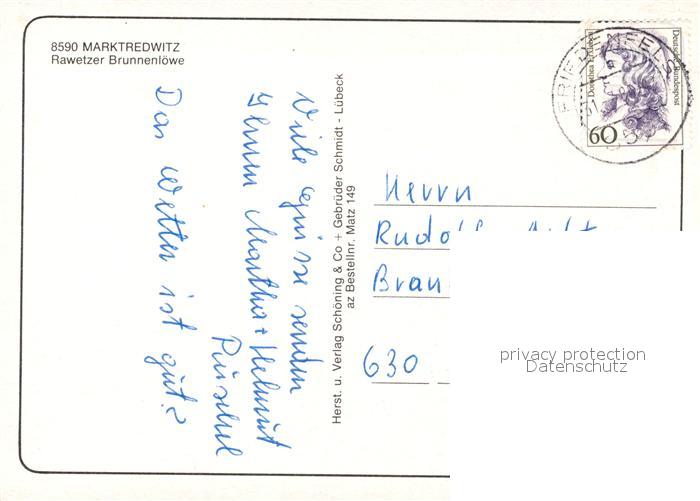 8590 MARKTREDWITZ
Rawetzer Brunnenlöwe
Viele Grüsse senden
Ihnen Martha + Helmut
Püschel
Das Wetter ist gut.
Herst. u. Verlag Schöning & Co + Gebrüder Schmidt - Lübeck
az Bestellnr. Matz 149
Dorothea Erxleben
Deutsche Bundespost
60
FRIEDENFELS
Herrn
Rudolf
Bran
630
privacy protection
Datenschutz